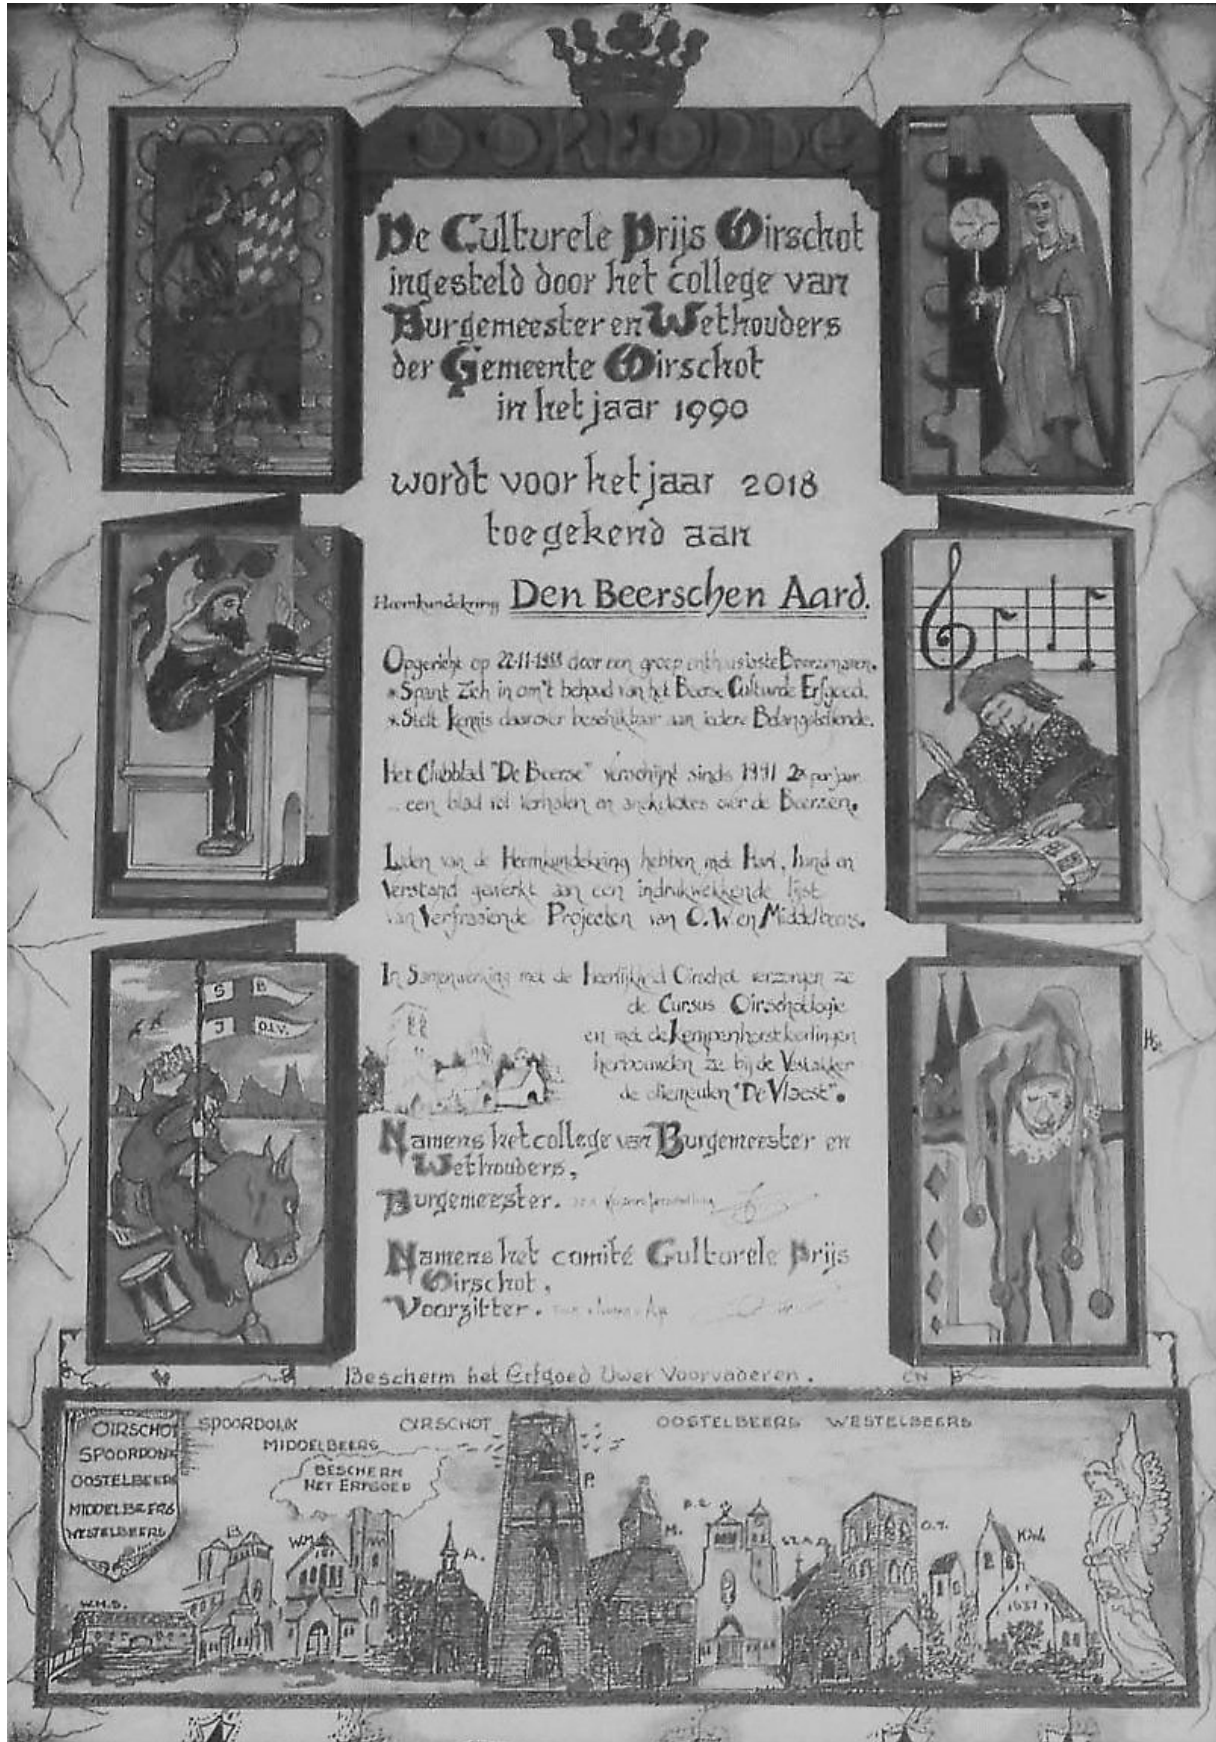 OORKONDE
De Culturele Prijs Oirschot
ingesteld door het college van
Burgemeester en Wethouders
der Gemeente Oirschot
in het jaar 1990
wordt voor het jaar 2018
toegekend aan
Heemkundekring Den Beerschen Aard.
Opgericht op 22-11-1988 door een groep enthousiaste Beerzenaren.
* Spant Zich in om't behoud van het Beerse Culturele Erfgoed.
* Stelt kennis daarover beschikbaar aan iedere Belangstellende.
Het Clubblad "De Beerse" verschijnt sinds 1991 2x per jaar
... een blad vol Verhalen en anekdotes over de Beerzen.
Leden van de Heemkundekring hebben met Hart, hand en
Verstand gewerkt aan een indrukwekkende lijst
van Verfraaiende Projecten van O.W en Middelbeers.
In Samenwerking met de Heerlijkheid Oirschot verzorgen ze
de Cursus Oirschotlogie
en met de Kempenhorstleerlingen
herbouwden ze bij de Vestakker
de oliemeulen "De Vleest".
Namens het college van Burgemeester en
Wethouders,
Burgemeester.
Namens het comité Culturele Prijs
Oirschot.
Voorzitter.
S B
J O.L.V.
Bescherm het Erfgoed Uwer Voorvaderen.
CN
OIRSCHOT
SPOORDONK
OOSTELBEERS
MIDDELBEERS
WESTELBEERS
SPOORDONK
MIDDELBEERS
OIRSCHOT
OOSTELBEERS WESTELBEERS
BESCHERM
HET ERFGOED
W.H.S.
B.
W.M.
A.
P.
M.
O.T.
1637